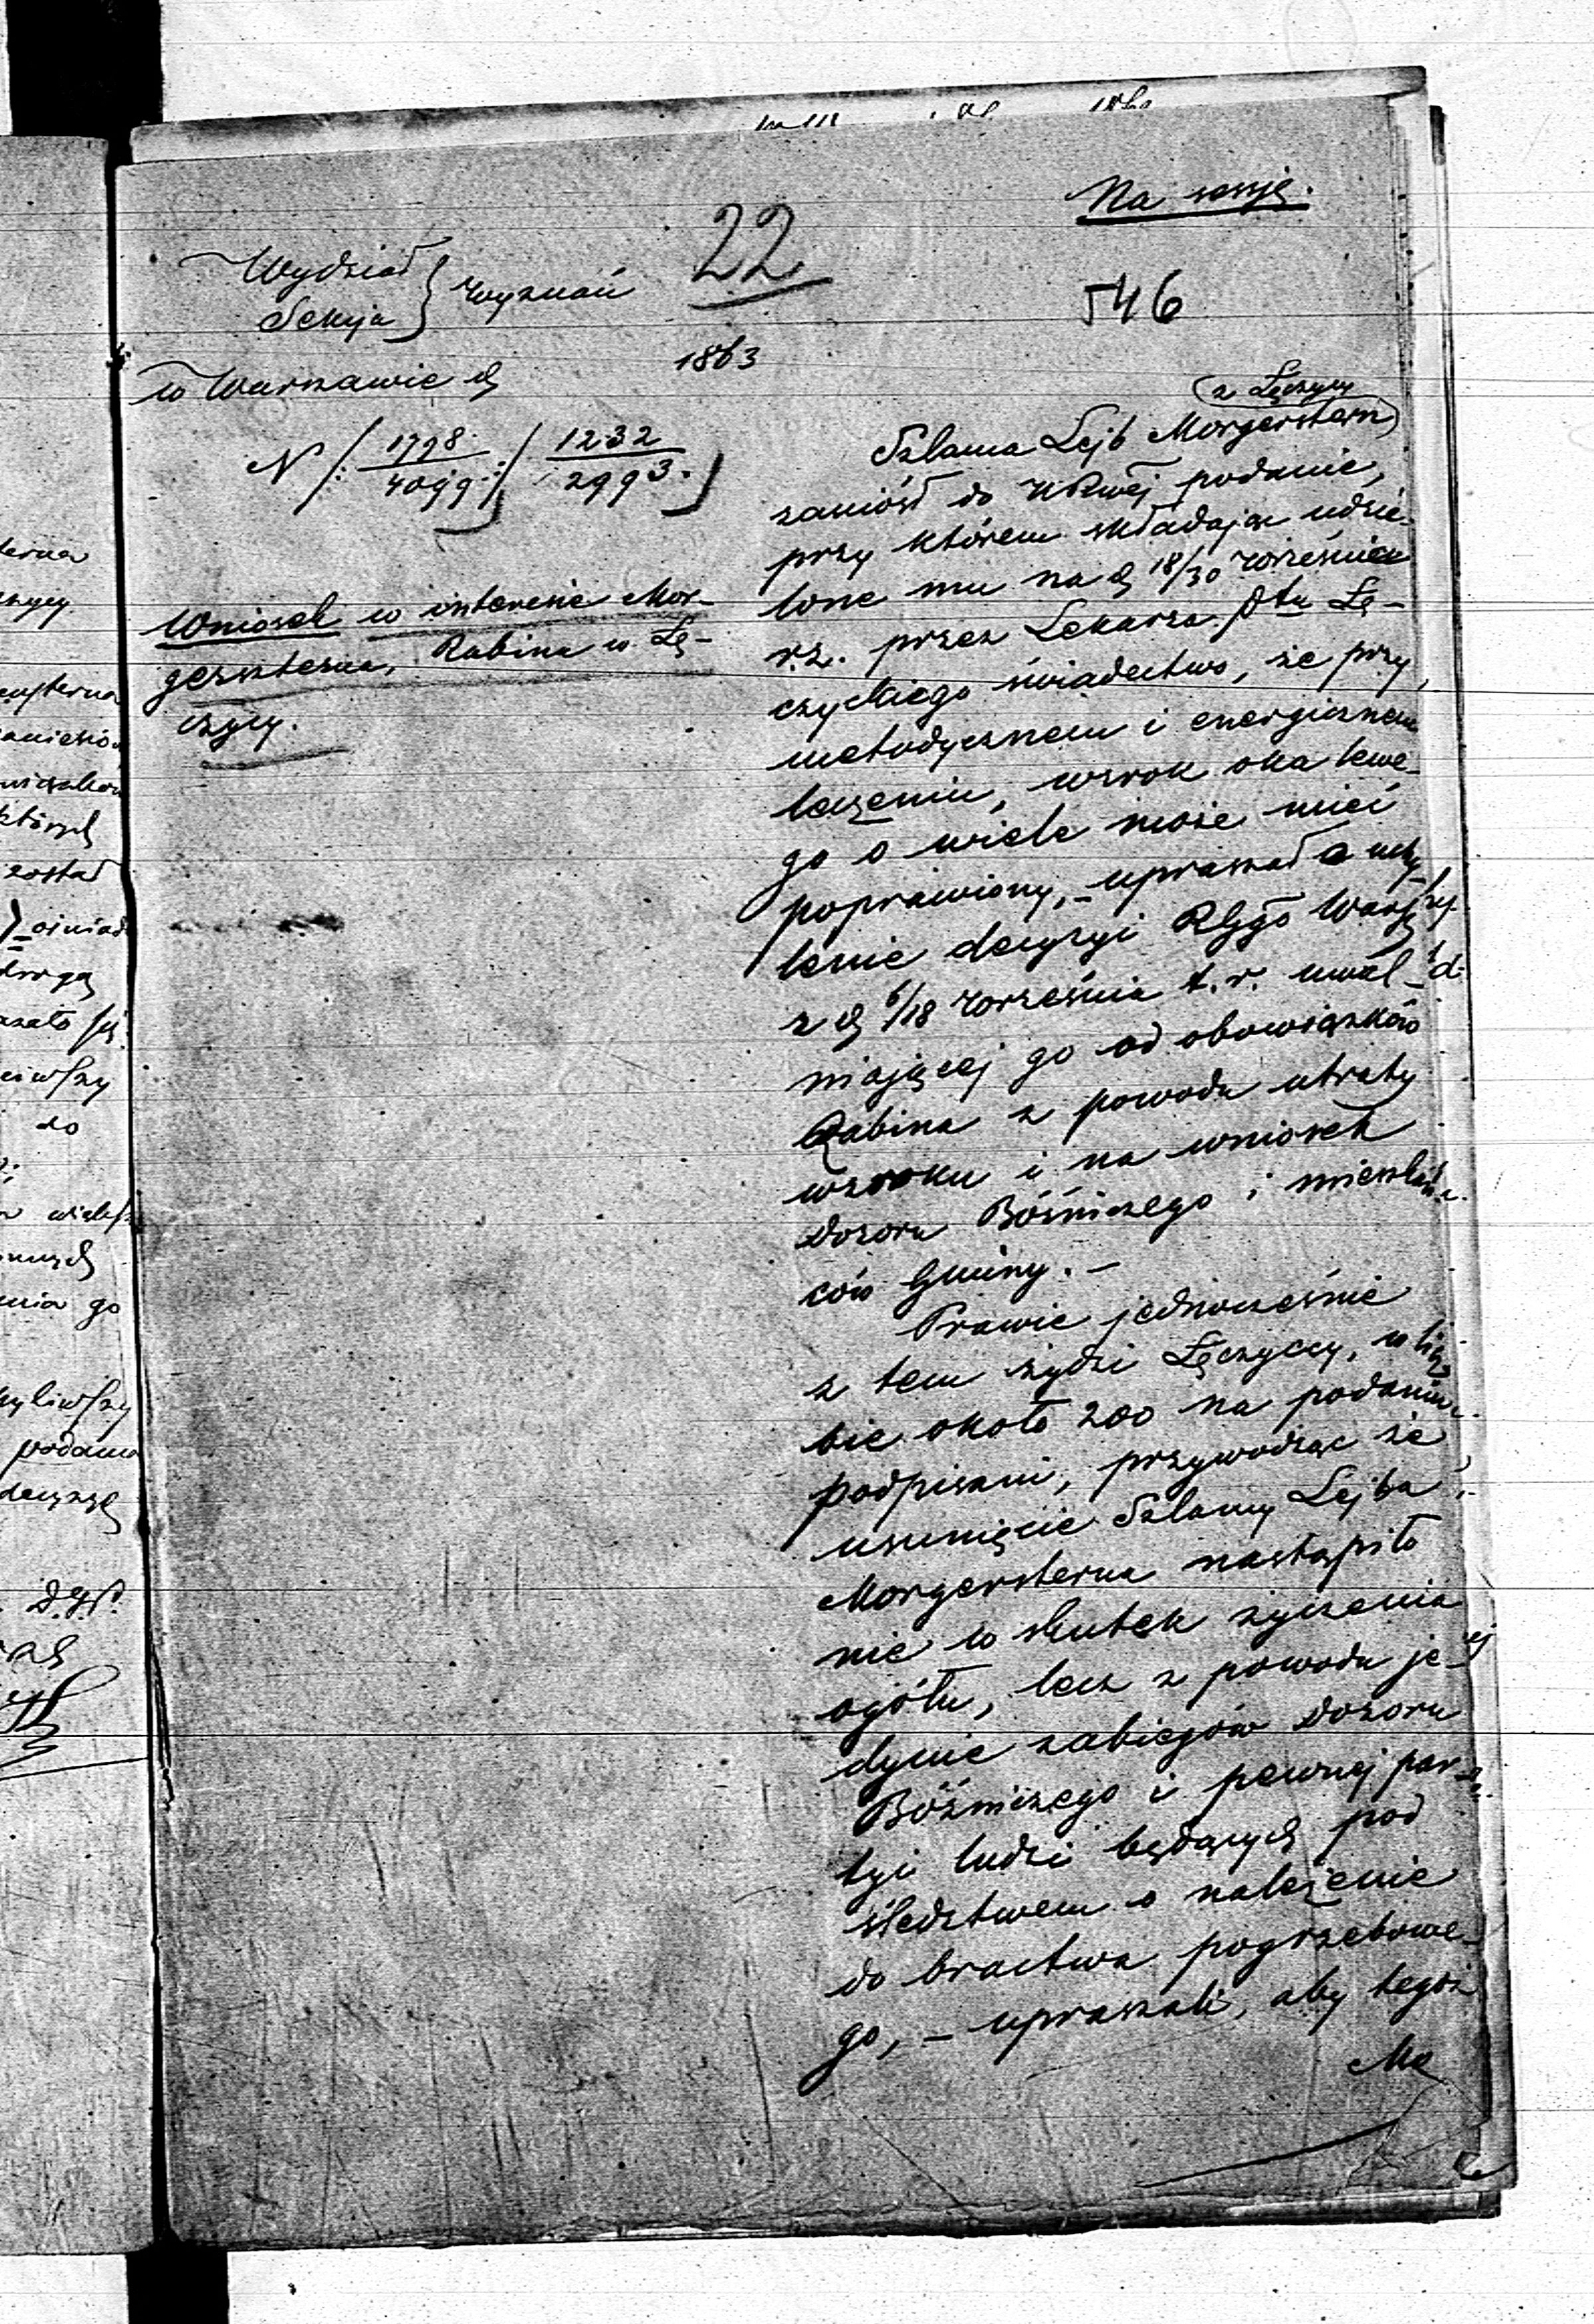 Na sessję.
22
546
Wydział
Sekcja } Wyznań
1863
w Warszawie d
N /: 1798 / 4099 :/ 1232 / 2993. /
Wniosek w interesie Mor-
gensterna, Rabina w Łę-
czycy.
(z Łęczycy
Szlama Lejb Morgenstern)
zaniósł do KRwej podanie,
przy którem składając udzie-
lone mu na d 18/30 Września
r.z. przez Lekarza Ptu Łę-
czyckiego świadectwo, że przy
metodycznem i energicznem
leczeniu, wzrok oka lewe-
go o wiele może mieć
poprawiony, – upraszał o uchy-
lenie decyzyi RGgo Warsz
z d 6/18 Września t.r. uwal-
niającej go od obowiązków
Rabina z powodu utraty
wzroku i na wniosek
Dozoru Bóżniczego i mieszkań-
ców Gminy. –
Prawie jednocześnie
z tem żydzi Łęczyccy, w licz-
bie około 200 na podaniu
podpisani, przywodząc że
usunięcie Szlamy Lejba
Morgensterna nastąpiło
nie w skutek życzenia
ogółu, lecz z powodu je-
dynie zabiegów Dozoru
Bóżniczego i pewnej par-
tyi ludzi będących pod
śledztwem o należenie
do bractwa pogrzebowe-
go, – upraszali, aby tegoż
Mo
terna
czycy.
których
został
drugą
do
nia go
podania
decyzyę